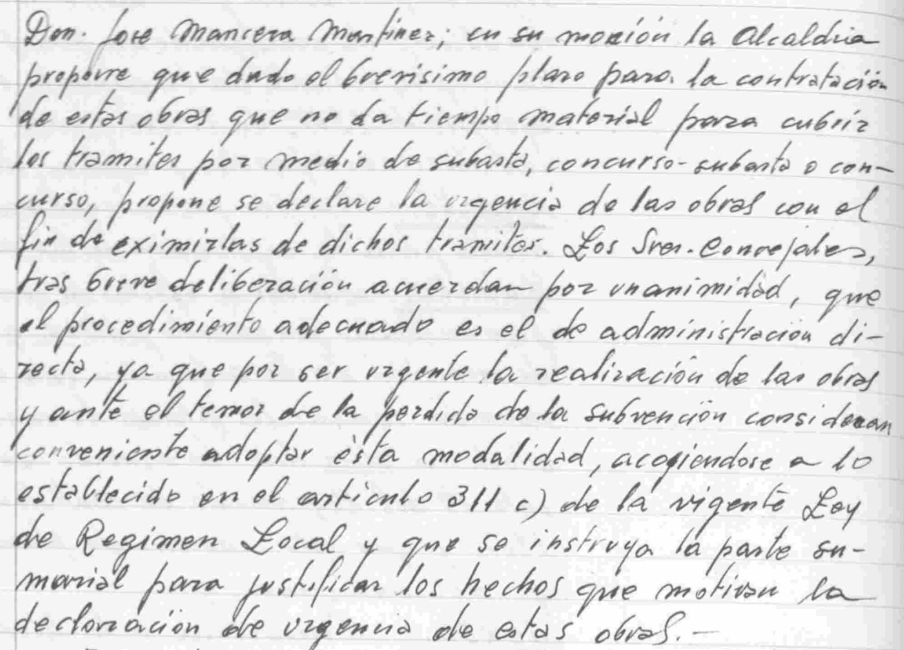 Don. Jose Mancera Martinez; en su moción la Alcaldia
propone que dado el brevisimo plazo para la contratación
de estas obras que no da tiempo material para cubrir
los tramites por medio de subasta, concurso-subasta o con-
curso, propone se declare la urgencia de las obras con el
fin de eximirlas de dichos tramites. Los Sres. Concejales,
tras breve deliberación acuerdan por unanimidad, que
el procedimiento adecuado es el de administración di-
recta, ya que por ser urgente la realización de las obras
y ante el temor de la perdida de la subvención consideran
conveniente adoptar ésta modalidad, acogiendose a lo
establecido en el articulo 311 c) de la vigente Ley
de Regimen Local y que se instruya la parte su-
marial para justificar los hechos que motivan la
declaración de urgencia de estas obras.-